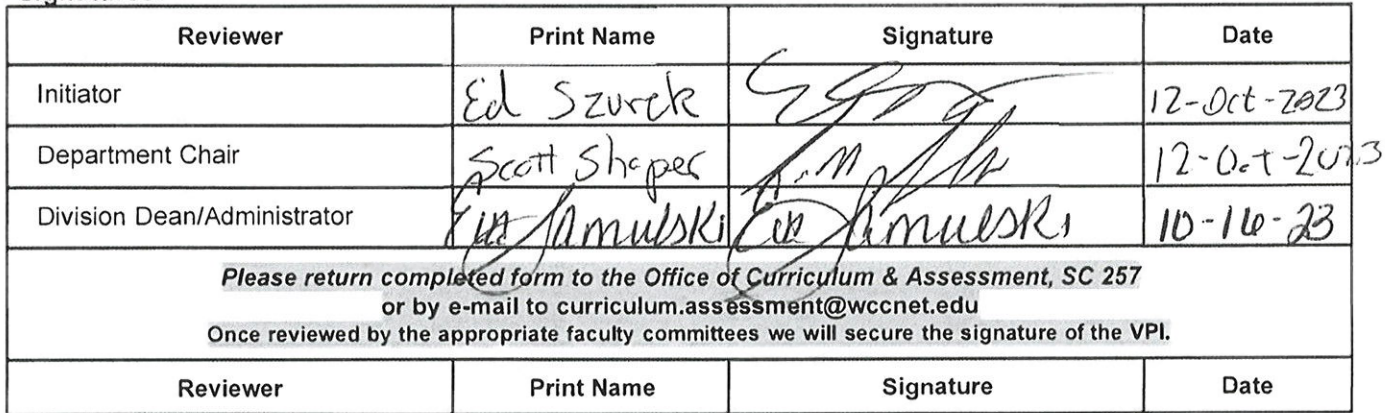 Reviewer Print Name Signature Date
Initiator Ed Szurek 12-Oct-2023
Department Chair Scott Shaper 12-Oct-2023
Division Dean/Administrator Samulski Samulski 10-16-23
Please return completed form to the Office of Curriculum & Assessment, SC 257
or by e-mail to curriculum.assessment@wccnet.edu
Once reviewed by the appropriate faculty committees we will secure the signature of the VPI.
Reviewer Print Name Signature Date